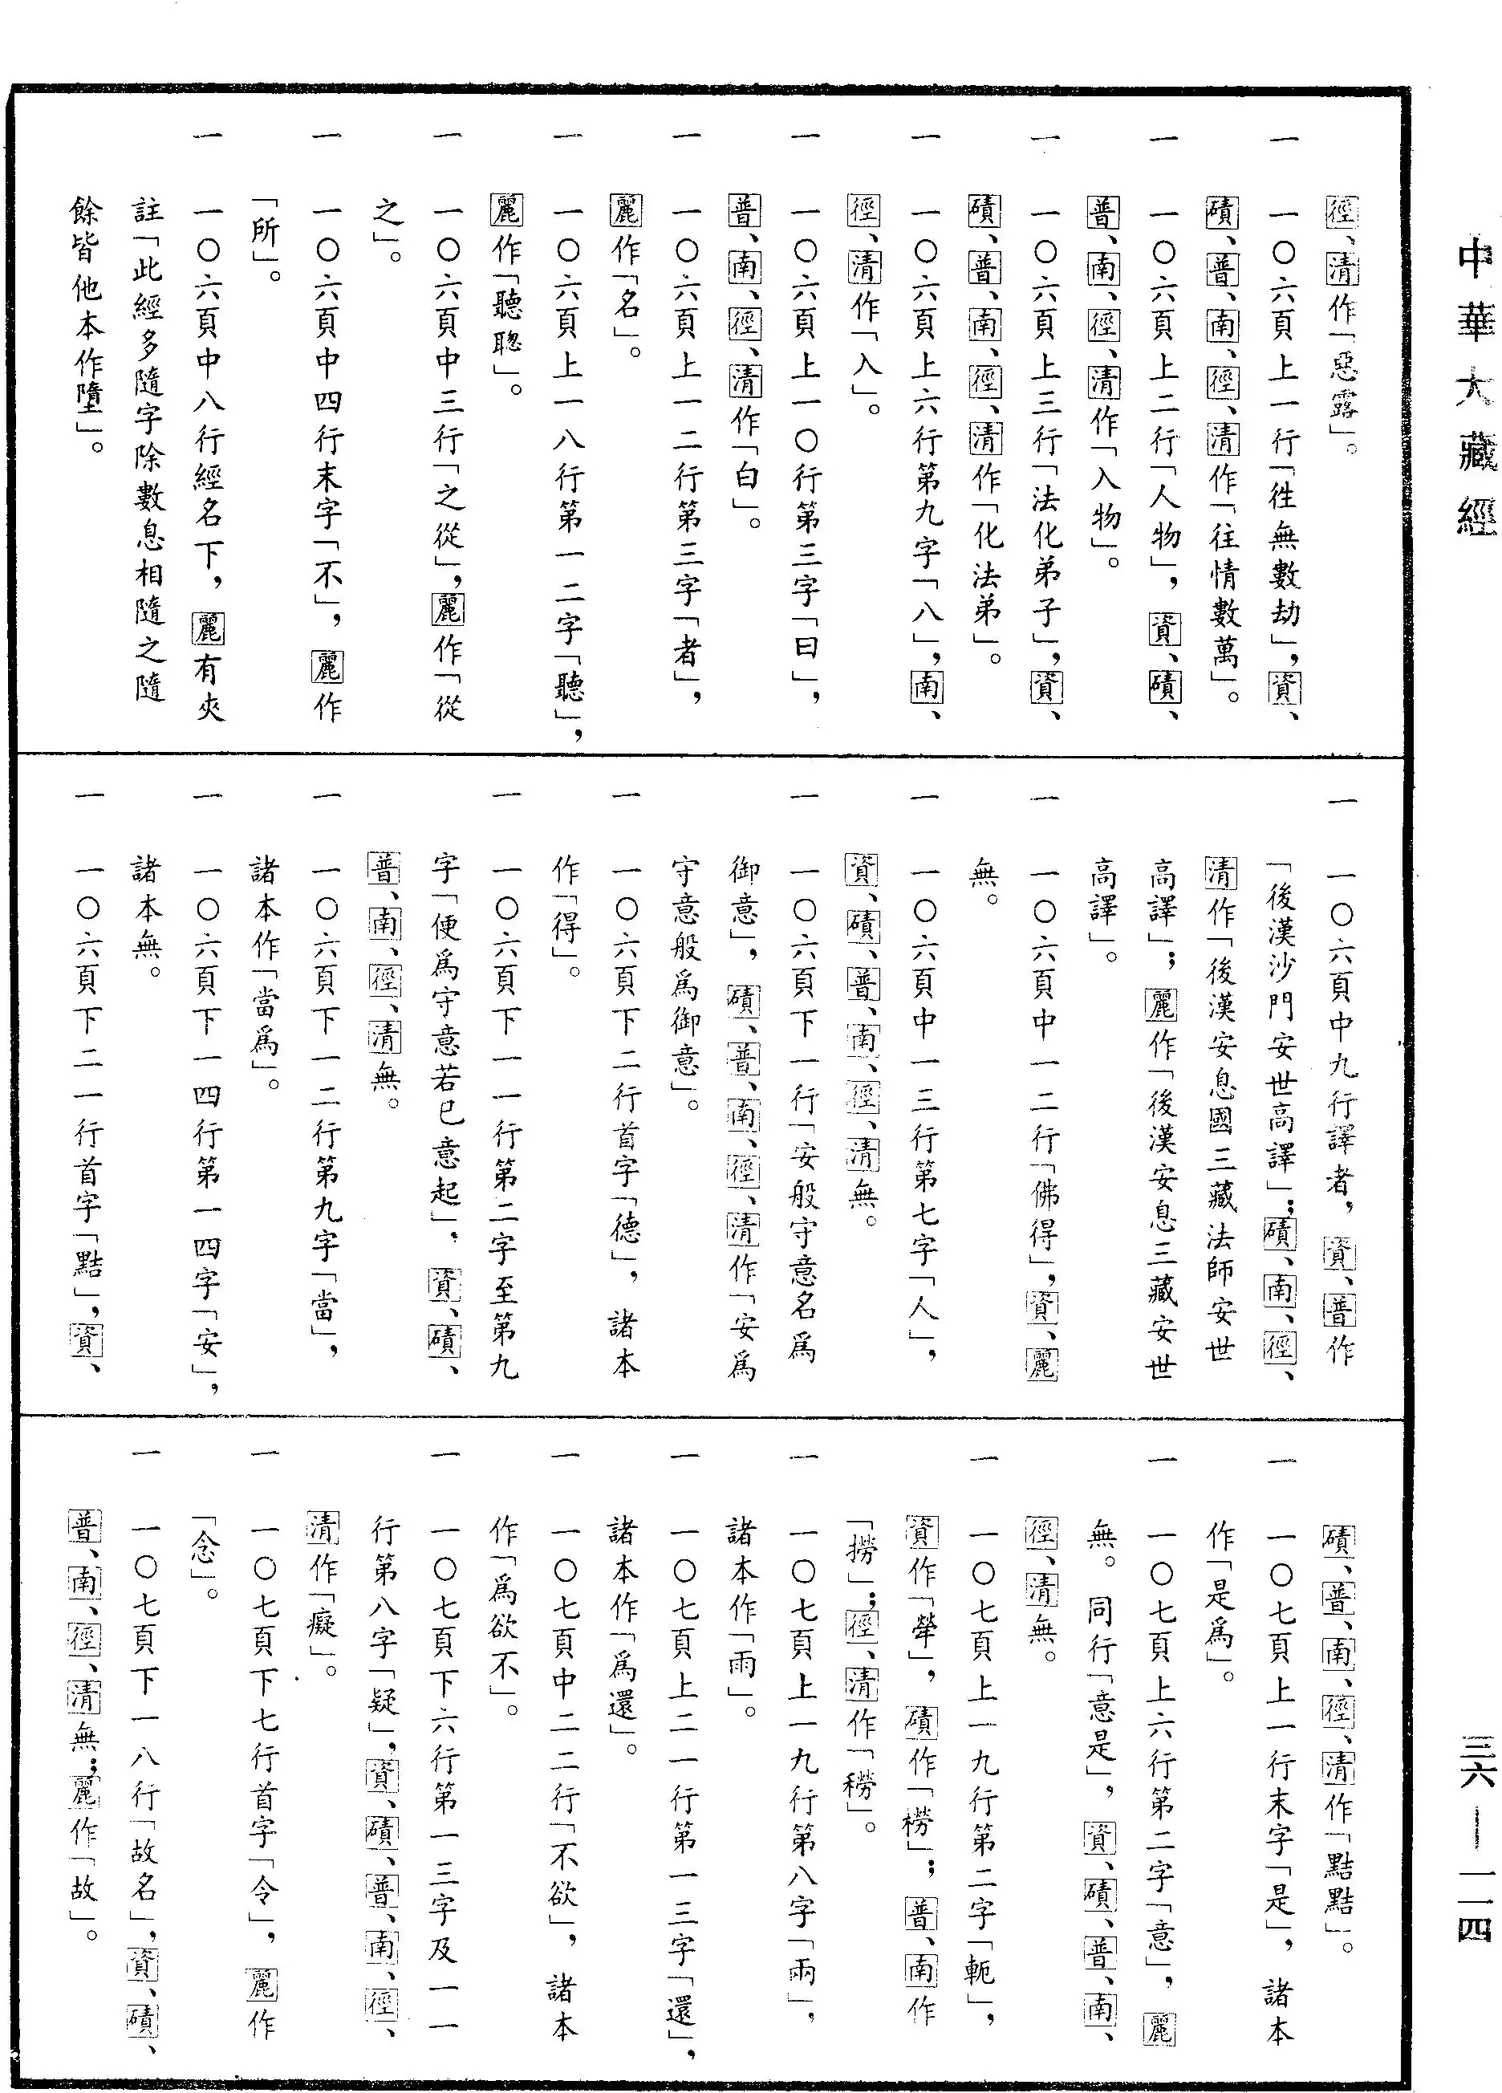 中華大藏經
三六—一一四
徑、清作「惡露」。
一 一〇六頁上一行「徃無數劫」，資、
磧、普、南、徑、清作「往情數萬」。
一 一〇六頁上二行「人物」，資、磧、
普、南、徑、清作「入物」。
一 一〇六頁上三行「法化弟子」，資、
磧、普、南、徑、清作「化法弟」。
一 一〇六頁上六行第九字「八」，南、
徑、清作「入」。
一 一〇六頁上一〇行第三字「曰」，
普、南、徑、清作「白」。
一 一〇六頁上一二行第三字「者」，
麗作「名」。
一 一〇六頁上一八行第一二字「聽」，
麗作「聽聰」。
一 一〇六頁中三行「之從」，麗作「從
之」。
一 一〇六頁中四行末字「不」，麗作
「所」。
一 一〇六頁中八行經名下，麗有夾
註「此經多隨字除數息相隨之隨
餘皆他本作墮」。
一 一〇六頁中九行譯者，資、普作
「後漢沙門安世高譯」；磧、南、徑、
清作「後漢安息國三藏法師安世
高譯」；麗作「後漢安息三藏安世
高譯」。
一 一〇六頁中一二行「佛得」，資、麗
無。
一 一〇六頁中一三行第七字「人」，
資、磧、普、南、徑、清無。
一 一〇六頁下一行「安般守意名爲
御意」，磧、普、南、徑、清作「安爲
守意般爲御意」。
一 一〇六頁下二行首字「德」，諸本
作「得」。
一 一〇六頁下一一行第二字至第九
字「便爲守意若已意起」，資、磧、
普、南、徑、清無。
一 一〇六頁下一二行第九字「當」，
諸本作「當爲」。
一 一〇六頁下一四行第一四字「安」，
諸本無。
一 一〇六頁下二一行首字「黠」，資、
磧、普、南、徑、清作「黠黠」。
一 一〇七頁上一行末字「是」，諸本
作「是爲」。
一 一〇七頁上六行第二字「意」，麗
無。同行「意是」，資、磧、普、南、
徑、清無。
一 一〇七頁上一九行第二字「軛」，
資作「犖」，磧作「橯」；普、南作
「撈」；徑、清作「𥢒」。
一 一〇七頁上一九行第八字「兩」，
諸本作「雨」。
一 一〇七頁上二一行第一三字「還」，
諸本作「爲還」。
一 一〇七頁中二二行「不欲」，諸本
作「爲欲不」。
一 一〇七頁下六行第一三字及一一
行第八字「疑」，資、磧、普、南、徑、
清作「癡」。
一 一〇七頁下七行首字「令」，麗作
「念」。
一 一〇七頁下一八行「故名」，資、磧、
普、南、徑、清無；麗作「故」。